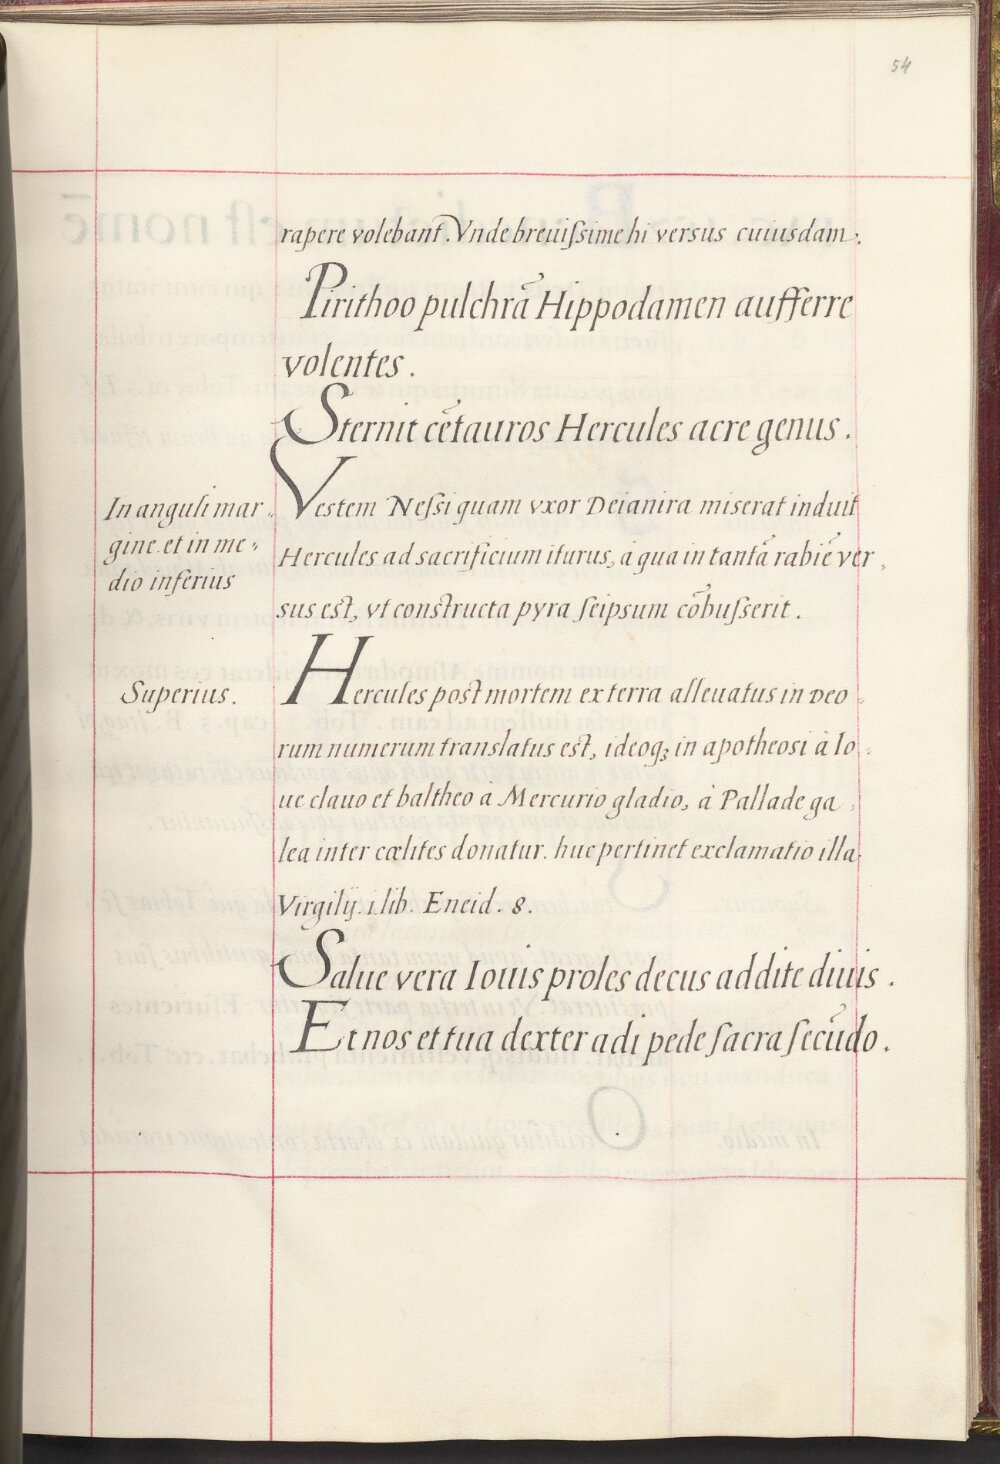 54
rapere volebant. Vnde breuiſsime hi versus cuiusdam.
Pirithoo pulchrā Hippodamen aufferre
volentes.
Sternit cētauros Hercules acre genus.
In anguli mar
gine et in me-
dio inferius
Vestem Neſsi quam vxor Deianira miserat induit
Hercules ad sacrificium iturus, à qua in tantā rabiē ver
sus est, vt constructa pyra ſeipsum cōbuſserit.
Superius.
Hercules post mortem ex terra alleuatus in deo
rum numerum translatus est, ideoqꝫ in apotheosi à Io
ue clauo et baltheo à Mercurio gladio, à Pallade ga
lea inter cœlites donatur. huc pertinet exclamatio illa
Virgilij. i. lib. Eneid. 8.
Salue vera Iouis proles decus addite diuis.
Et nos et tua dexter adi pede ſacra ſecūdo.